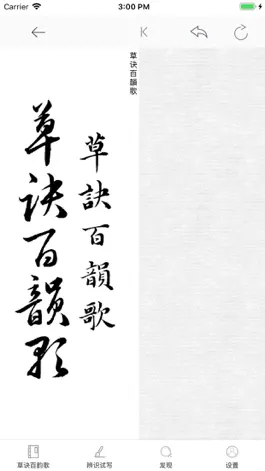 Carrier
3:00 PM
草诀百韻歌
草诀百韻歌
草訣百韻歌
草诀百韵歌
辨识试写
发现
设置